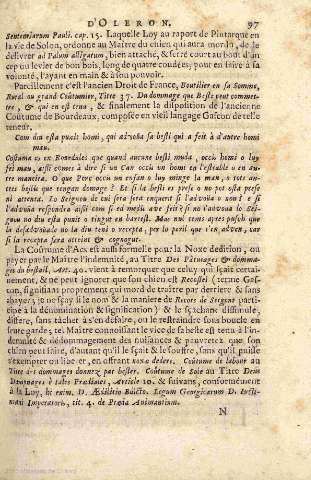 D'OLERON. 97
Sententiarum Pauli. cap. 15. Laquelle Loy au raport de Plutarque en
la vie de Solon, ordonne au Maître du chien qui aura mordu, de le
delivrer ad Palum alligatum, bien attaché, & serré court au bout d'un
pau ou levier de bon bois, long de quatre coudées, pour en faire à sa
volonté, l'ayant en main & à son pouvoir.
Pareillement c'est l'ancien Droit de France, Boutillier en sa Somme,
Rural au grand Coûtumier, Titre 37. Du dommage que Beste peut commet-
tre, & qui en est tenu, & finalement la disposition de l'ancienne
Coûtume de Bourdeaux, composée en vieil langage Gascon de telle
teneur,
Com deu esta punit homi, qui advoüa sa besti qui a feit à d'autre homi
mau.
Costuma es en Bourdales que quand aucune besti muda, occi homi o luy
fei mau, aissi comes à dire si un Can occi un home en l'estable o en au-
tre maneira. O que Porc occi un enfan o luy minge la man, o tote au-
tre bestie que tengan domage? Et si la besti es prese o no pot esta prese
ni attenta. Lo Seignou de lui sera sera enquerit si l'advoüa o non? e si
l'advoüa respondra aissi com si ed medis ave feit; si no l'advoüa lo Sei-
gnou no diu esta punit o tingut en bartest. Mas nul temps aprés puisch que
la desadvoüade no la diu teni o recepta, per lo peril que s'en adven, car
si la recepta sera atteint & cognogut.
La Coûtume d'Acs est aussi formelle pour la Noxe dedition, ou
payer par le Maître l'indemnité, au Titre Des Pâturages & domma-
ges du bestail, Art. 40. vient à remarquer que celuy qui sçait certai-
nement, & ne peut ignorer que son chien est Recossei (terme Gas-
con, signifiant proprement qui mord de traître par derriere & sans
abayer; & ne sçay si le nom & la maniere de Recors de Sergent parti-
cipe à la dénomination & signification) & le sçachant dissimule,
differe, sans tâcher à s'en défaire, ou le restreindre sous boucle en
seure garde; tel Maître connoissant le vice de sa beste est tenu à l'in-
demnité & dédommagement des nuisances & pauvretez que son
chien peut faire, d'autant qu'il le sçait & le souffre, sans qu'il puisse
s'exempter ou liberer, en offrant noxa dedere. Coûtume de labour au
Titre des dommages donnez par bestes. Coûtume de Sole au Titre Deus
Dommages & tales Frediaies, Article 10. & suivans, conformément
à la Loy, Si enim. D. Ædilitio Edicto. Legum Georgicarum D. Justi-
niani Imperatoris, tit. 4. de Præda Animantium.
N